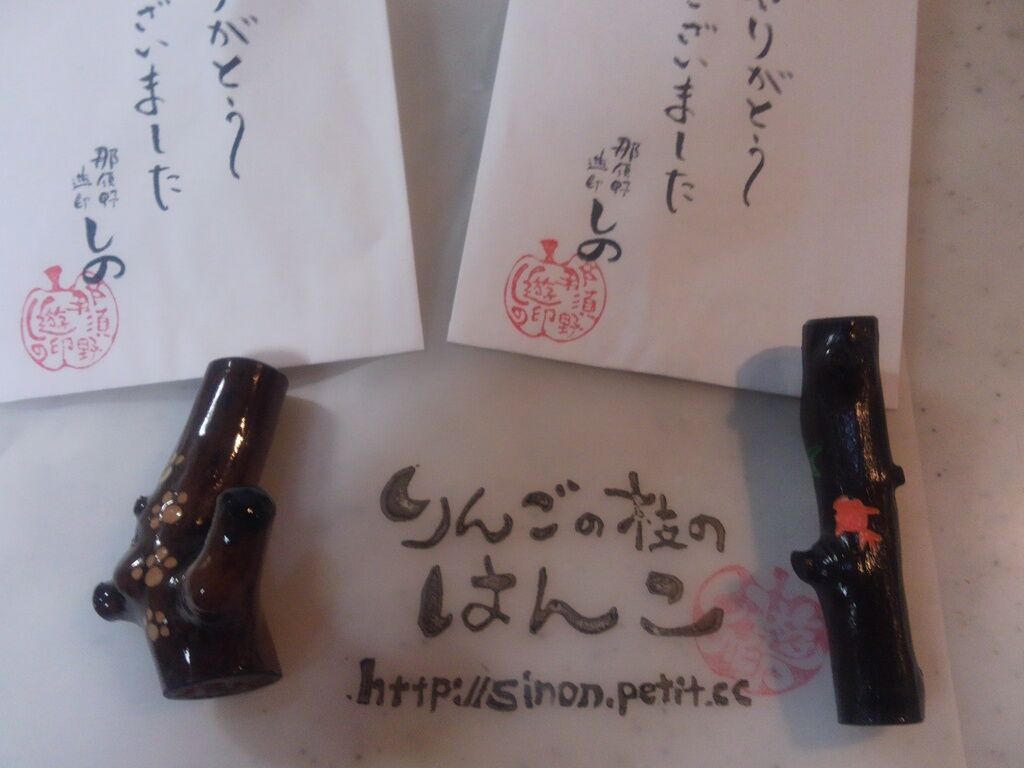 りがとう
ざいました
那須野
遊印
しの
那須野
遊印
しの
ありがとう
ございました
那須野
遊印
しの
那須野
遊印
しの
りんごの枝の
はんこ
http://sinon.petit.cc